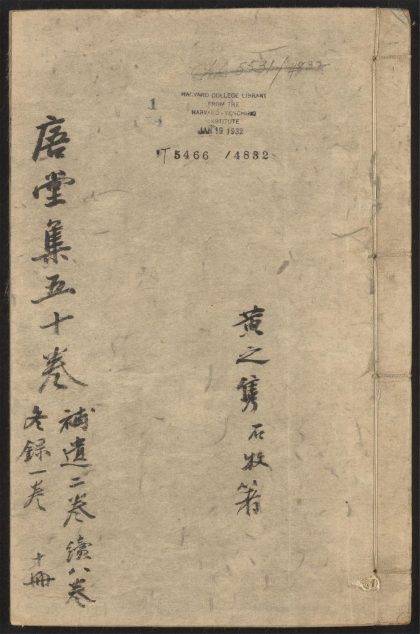 5531/4832
HARVARD COLLEGE LIBRARY
FROM THE
HARVARD-YENCHING
INSTITUTE
JAN 19 1932
1
T 5466 / 4832
黄之雋石牧著
㾗堂集五十卷
補遺二卷續八卷
冬錄一卷 十冊